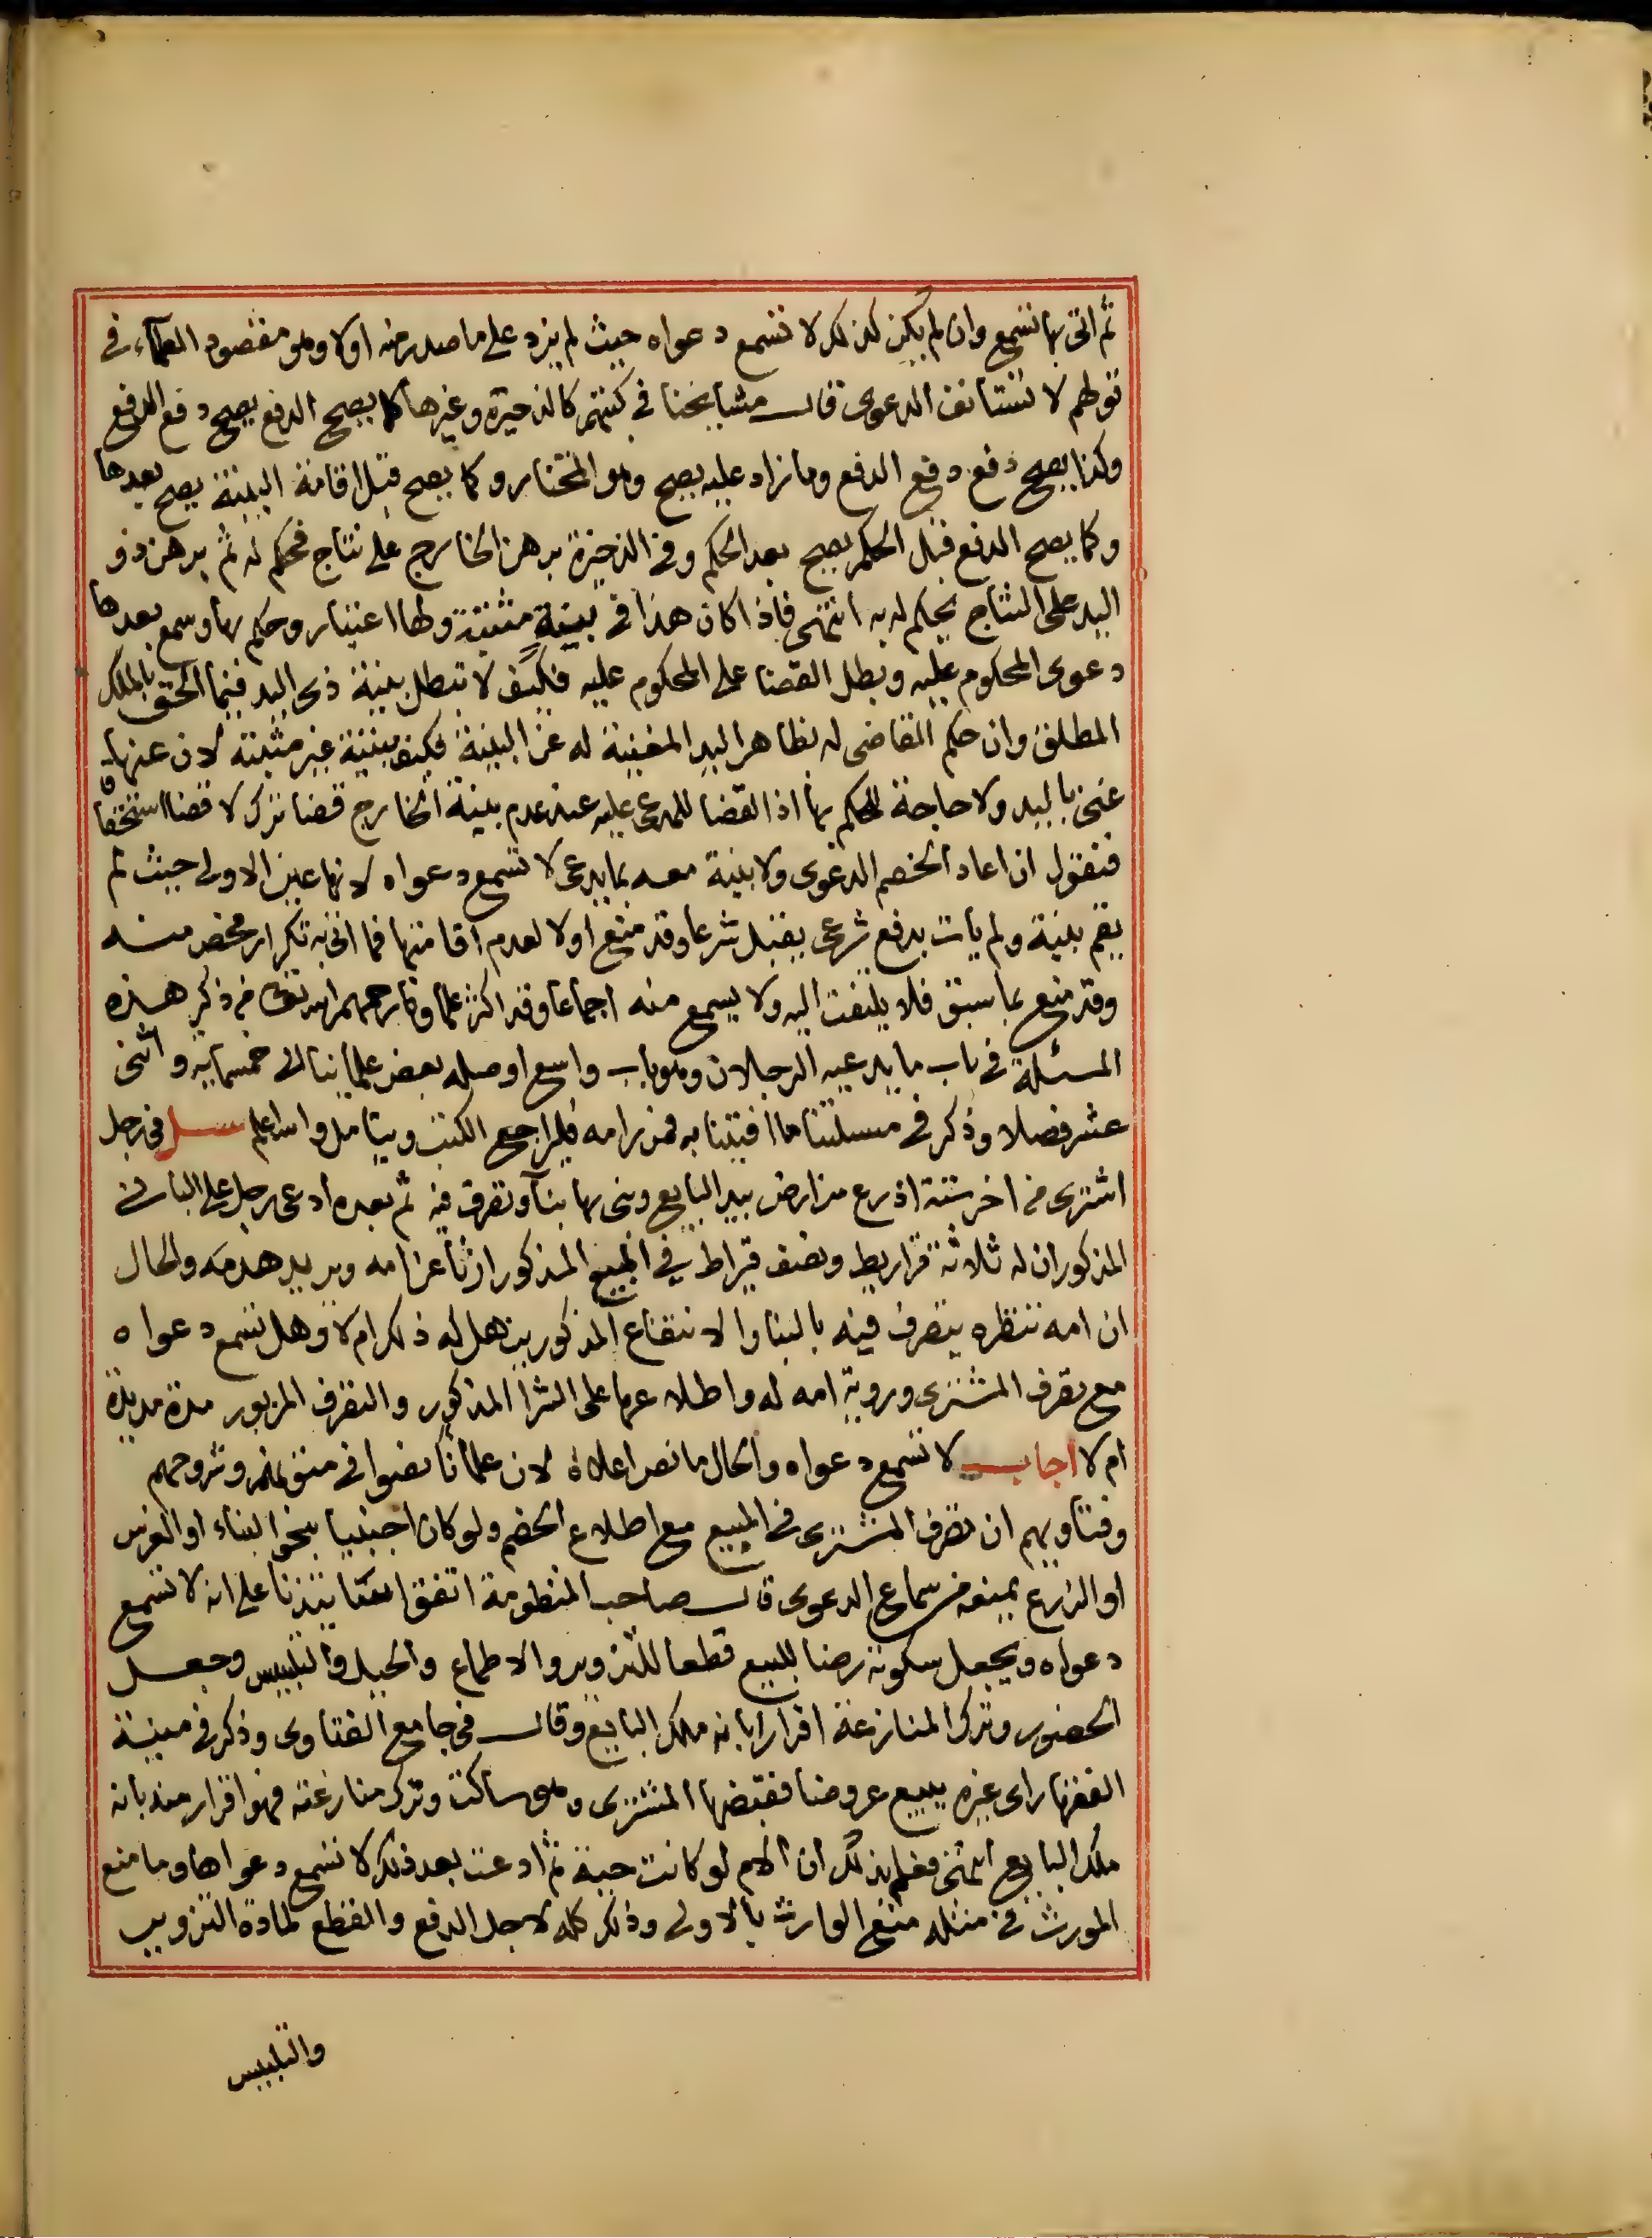 ثم اتى بها تسمع وان لم يكن كذلك لا تسمع دعواه حيث لم يزد على ما صدر منه اولا وهو مقصود العلماء في
قولهم لا تستانف الدعوى قال مشايخنا في كتبهم كالذخيرة وغيرها كما يصح الدفع يصح دفع الدفع
وكذا يصح دفع دفع الدفع وما زاد عليه يصح وهو المختار وكما يصح قبل اقامة البينة يصح بعدها
وكما يصح الدفع قبل الحكم يصح بعد الحكم وفي الذخيرة برهن الخارج على نتاج فحكم له ثم برهن ذو
اليد على النتاج يحكم له به انتهى فاذا كان هذا في بينة مثبتة ولها اعتبار وحكم بها وسمع بعدها
دعوى المحكوم عليه وبطل القضا على المحكوم عليه فكيف لا تبطل بينة ذى اليد فيما الحق بالملك
المطلق وان حكم القاضى له بظاهر اليد المغنية له عن البينة فكيف ببينة غير مثبتة لان عنها
غنى باليد ولا حاجة للحكم بها اذا القضا للمدعى عليه عند عدم بينة الخارج قضا ترك لا قضا استحقاق
فنقول ان اعاد الخصم الدعوى ولا بينة معه بما يدعى لا تسمع دعواه لانها عين الاولى حيث لم
يقم بينة ولم يات بدفع شرعى يقبل شرعا وقد منع اولا لعدم اقامتها فما اتى به تكرار محض منه
وقد منع بما سبق فلا يلتفت اليه ولا يسمع منه اجماعا وقد اكثر علماؤنا رحمهم الله تعالى من ذكر هذه
المسئلة في باب ما يدعيه الرجلان وهو باب واسع اوصله بعض علمائنا الى خمسماية واثنى
عشر فصلا وذكر في مسئلتنا ما افتينا به فمن رامه فليراجع الكتب ويتامل والله اعلم سئل في رجل
اشترى من اخر ستة اذرع من ارض بيد البايع وبنى بها بناء وتصرف فيه ثم بعده ادعى رجل على البانى
المذكور ان له ثلاثة قراريط ونصف قيراط في المبيع المذكور ارثا عن امه ويريد هدمه والحال
ان امه تنظره يتصرف فيه بالبنا والانتفاع المذكورين هل له ذلك ام لا وهل تسمع دعواه
مع تصرف المشترى وروية امه له واطلاعها على الشرا المذكور والتصرف المزبور مدة مديدة
ام لا اجاب لا تسمع دعواه والحال ما نص اعلاه لان علمانا نصوا في متونهم وشروحهم
وفتاويهم ان تصرف المشترى في المبيع مع اطلاع الخصم ولو كان اجنبيا بنحو البناء او الغرس
او الزرع يمنعه من سماع الدعوى قال صاحب المنظومة اتفق اساتيذنا على انه لا تسمع
دعواه ويجعل سكوته رضا للبيع قطعا للتزوير والاطماع والحيل والتلبيس وجعل
الحضور وترك المنازعة اقرارا بانه ملك البايع وقال في جامع الفتاوى وذكر في منية
الفقها راى غيره يبيع عروضا فقبضها المشترى وهو ساكت وترك منازعته فهو اقرار منه بانه
ملك البايع انتهى فعلم بذلك ان الام لو كانت حية ثم ادعت بعد ذلك لا تسمع دعواها وما منع
المورث في مثله منع الوارث بالاولى وذلك كله لاجل الدفع والقطع لمادة التزوير
والتلبيس